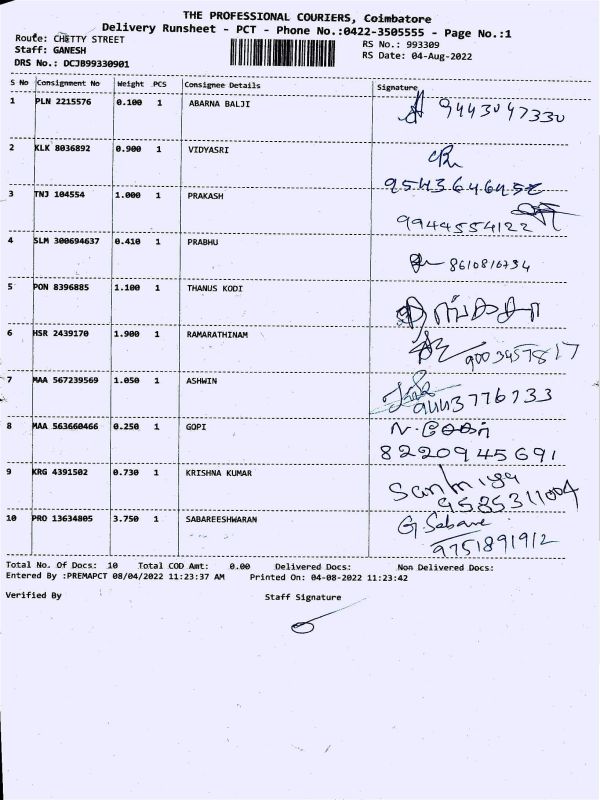 THE PROFESSIONAL COURIERS, Coimbatore
Delivery Runsheet - PCT - Phone No.:0422-3505555 - Page No.:1
Route: CHETTY STREET
RS No.: 993309
Staff: GANESH
RS Date: 04-Aug-2022
DRS No.: DCJB99330901
S No Consignment No Weight PCS Consignee Details Signature
1 PLN 2215576 0.100 1 ABARNA BALJI 9443047330
2 KLK 8036892 0.900 1 VIDYASRI
3 TNJ 104554 1.000 1 PRAKASH 9944554122
4 SLM 300694637 0.410 1 PRABHU 8610816734
5 PON 8396885 1.100 1 THANUS KODI
6 HSR 2439170 1.900 1 RAMARATHINAM 9003457817
7 MAA 567239569 1.050 1 ASHWIN
8 MAA 563660466 0.250 1 GOPI
8220945691
9 KRG 4391502 0.730 1 KRISHNA KUMAR
9585311004
10 PRO 13634805 3.750 1 SABAREESHWARAN G. Sabare
9751891912
Total No. Of Docs: 10 Total COD Amt: 0.00 Delivered Docs: Non Delivered Docs:
Entered By :PREMAPCT 08/04/2022 11:23:37 AM Printed On: 04-08-2022 11:23:42
Verified By Staff Signature